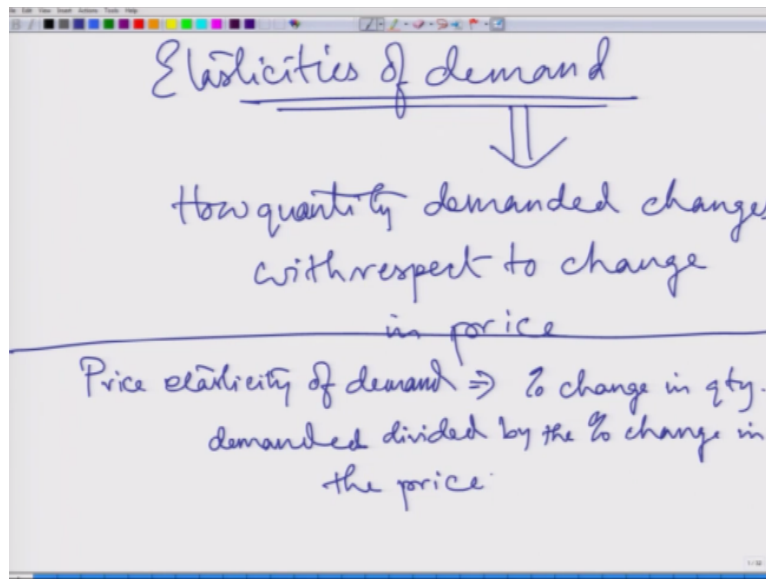 Edit View Insert Actions Tools Help
Elasticities of demand
How quantity demanded changes
with respect to change
in price
Price elasticity of demand ⇒ % change in qty.
demanded divided by the % change in
the price.